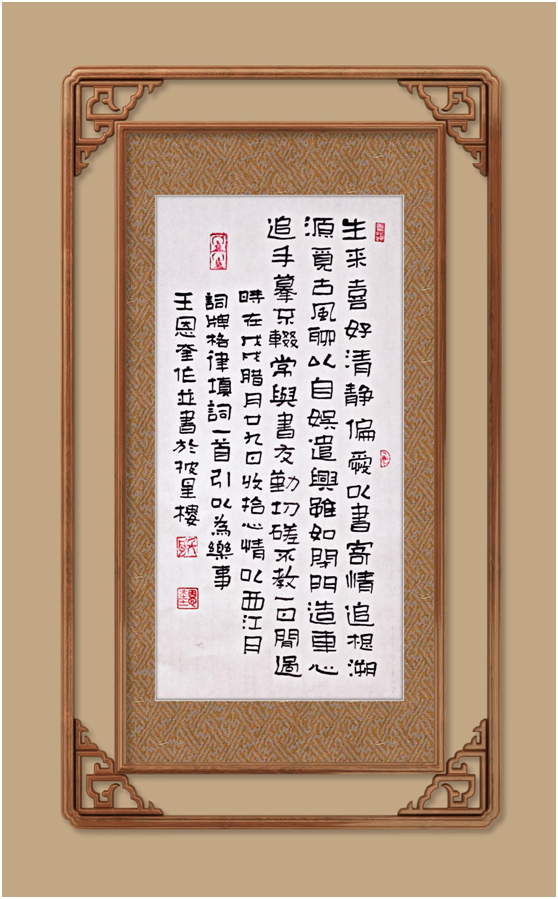 生來喜好清靜偏愛以書寄情追根溯
源覓古風聊以自娛遣興雖如閉門造車心
追手摹不輟常與書友勤切磋不教一日閒過
時在戊戌臘月廿九日收拾心情以西江月
詞牌格律填詞一首引以為樂事
王恩奎作並書於披星樓